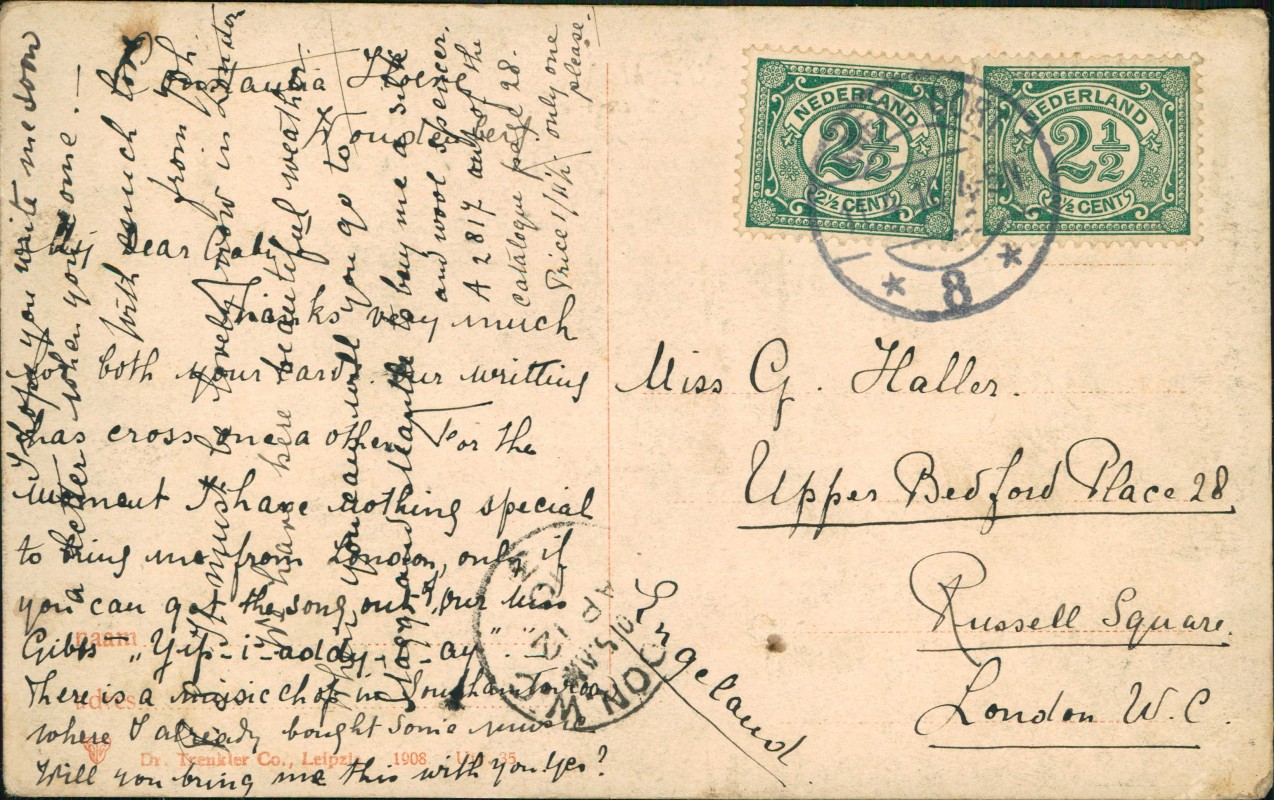 My Dear Gaby
Thanks very much
for both your cards. Our writting
has cross one a other. For the
moment I have nothing special
to bring me from London, only if
you can get the song out of "Our Miss
Gibbs" "Yip-i-addy-i-ay".
There is a music chop in Southampton
where I already bought some music
Will you bring me this with you. Yes?
When you can will you go to
and to buy me a silk
and wool spencer.
A 2817 out of the
catalogue page 28.
Price 1/11½ only one
please.
It must be lovely now in London
We have here beautiful weather.
I hope you write me soon
a letter when you come. —
With much love
from
NEDERLAND
2½
2½ CENT
NEDERLAND
2½
2½ CENT
8
Miss G. Haller.
Upper Bedford Place 28
Russell Square.
London W.C.
Engeland
LONDON W.C.
AP
naam
adres
Dr. Trenkler Co., Leipzig 1908 35